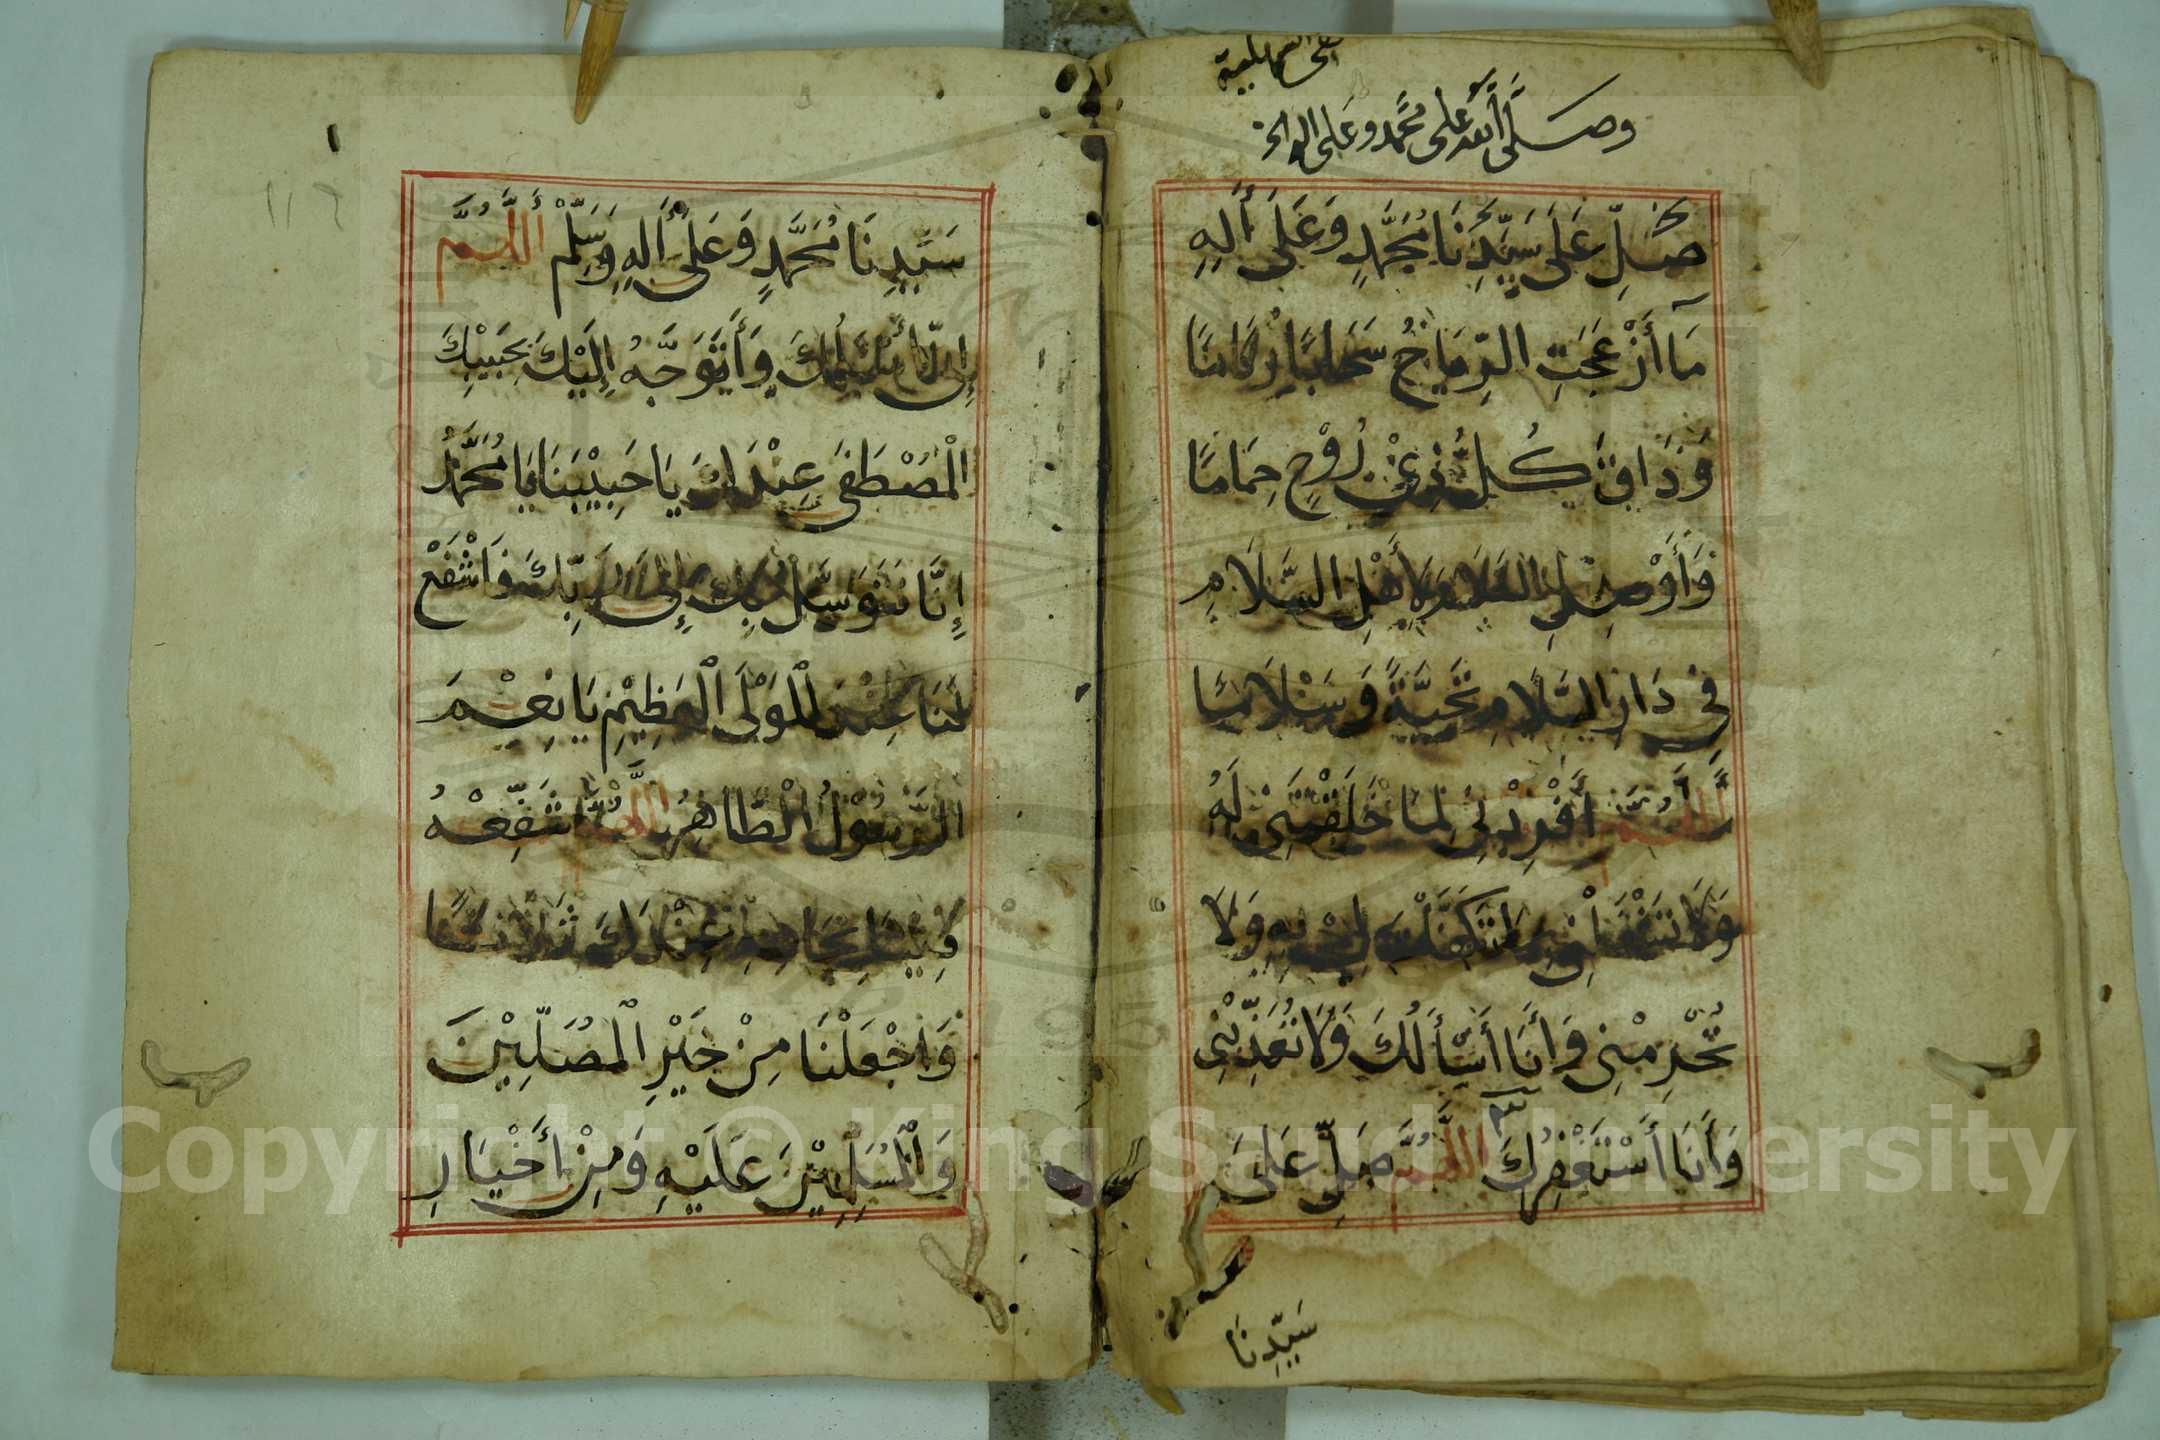 وصلى الله على محمد وعلى اله الخ
صَلِّ عَلَى سَيِّدِنَا مُحَمَّدٍ وَعَلَى أَلِهِ
مَآ أَزْعَجَتِ الرِّيَاحُ سَحَابًا رُكَامًا
وَذَاقَ كُلُّ ذِيْ رُوْحٍ حِمَامًا
وَأَوْصِلِ السَّلَامَ لِأَهْلِ السَّلَامِ
فِي دَارِ السَّلَامِ تَحِيَّةً وَسَلَامًا
أَللّٰهُمَّ أَفْرِدْنِي لِمَا خَلَقْتَنِي لَهُ
وَلَا تَشْغَلْنِي بِمَا تَكَفَّلْتَ لِيْ بِهِ وَلَا
تَحْرِمْنِي وَأَنَا أَسْأَلُكَ وَلَا تُعَذِّبْنِي
وَأَنَا أَسْتَغْفِرُكَ ٣ اللّٰهُمَّ صَلِّ عَلَى
سَيِّدِنَا
سَيِّدِنَا مُحَمَّدٍ وَعَلَى أَلِهِ وَسَلِّمْ أَللّٰهُمَّ
إِنِّي أَسْئَلُكَ وَأَتَوَجَّهُ إِلَيْكَ بِحَبِيْبِكَ
الْمُصْطَفَى عِنْدَكَ يَا حَبِيْبَنَا يَا مُحَمَّدُ
إِنَّا نَتَوَسَّلُ بِكَ إِلَى رَبِّكَ فَاشْفَعْ
لَنَا عِنْدَ الْمَوْلَى الْعَظِيْمِ يَا نِعْمَ
الرَّسُوْلُ الْطَّاهِرُ اللّٰهُمَّ شَفِّعْهُ
فِيْنَا بِجَاهِهِ عِنْدَكَ ثَلَاثًا
وَاجْعَلْنَا مِنْ خَيْرِ الْمُصَلِّيْنَ
وَالْمُسَلِّمِيْنَ عَلَيْهِ وَمِنْ أَخْيَارِ
Copyright © King Saud University